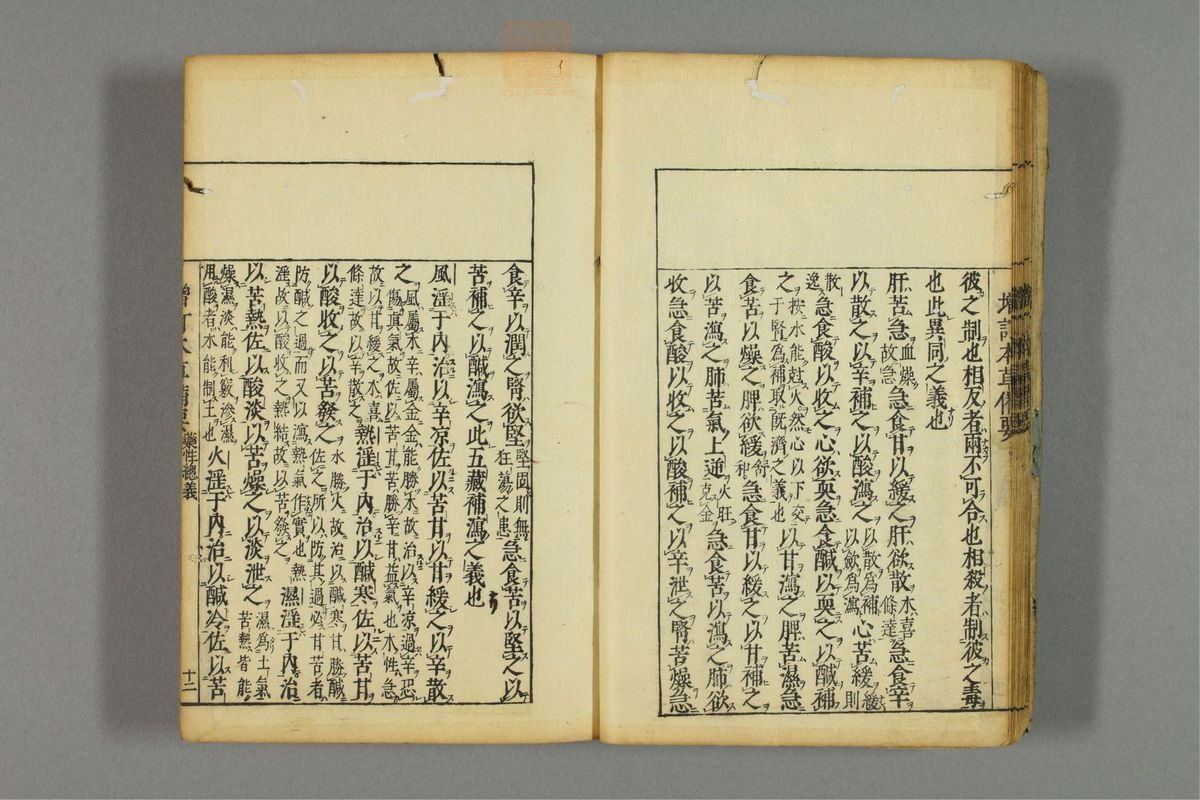 增訂本草備要
彼之制也相反者兩不可合也相殺者制彼之毒
也此異同之義也
肝苦急血燥故急急食甘以緩之肝欲散木喜條達急食辛
以散之以辛補之以酸瀉之以散爲補以斂爲瀉心苦緩緩則
散逸急食酸以收之心欲耎急食鹹以耎之以鹹補
之按水能尅火然心以下交于腎爲補取既濟之義也以甘瀉之脾苦濕急
食苦以燥之脾欲緩舒和急食甘以緩之以甘補之
以苦瀉之肺苦氣上逆火旺克金急食苦以瀉之肺欲
收急食酸以收之以酸補之以辛泄之腎苦燥急
食辛以潤之腎欲堅堅固則無狂蕩之患急食苦以堅之以
苦補之以鹹瀉之此五藏補瀉之義也
風淫于內治以辛凉佐以苦甘以甘緩之以辛散
之風屬木辛屬金金能勝木故治以辛凉過辛恐傷眞氣故佐以苦甘苦勝辛甘益氣也木性急
故以甘緩之木喜條達故以辛散之熱淫于內治以鹹寒佐以苦甘
以酸收之以苦發之水勝火故治以鹹寒甘勝鹹佐之所以防其過必甘苦者
防鹹之過而又以瀉熱氣作實也熱淫故以酸收之熱結故以苦發之濕淫于內治
以苦熱佐以酸淡以苦燥之以淡泄之濕爲土氣苦熱皆能
燥濕淡能利竅滲濕用酸者木能制土也火淫于內治以鹹冷佐以苦
藥性總義
十二